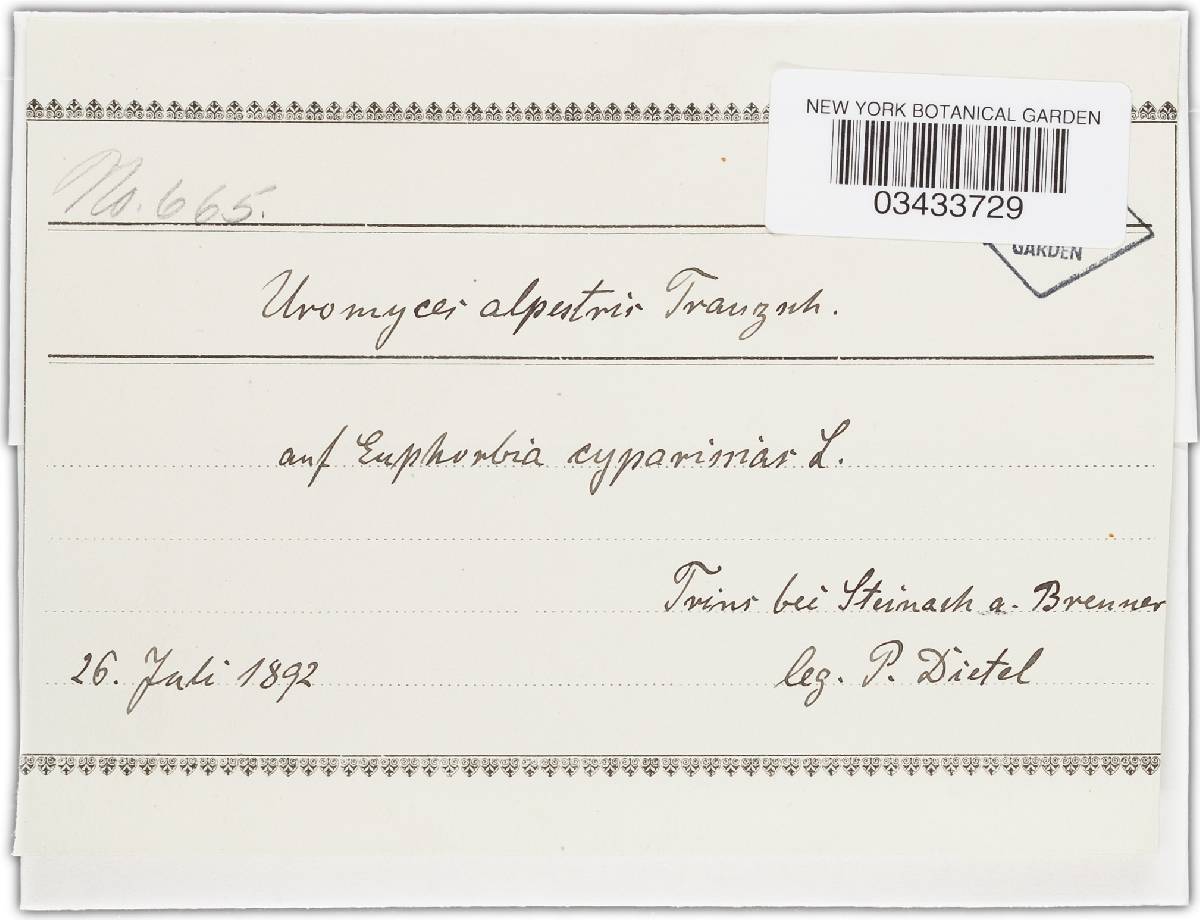 NEW YORK BOTANICAL GARDEN
03433729
GARDEN
No. 665.
Uromyces alpestris Tranzsch.
auf Euphorbia cyparissias L.
Trins bei Steinach a. Brenner
26. Juli 1892
leg. P. Dietel